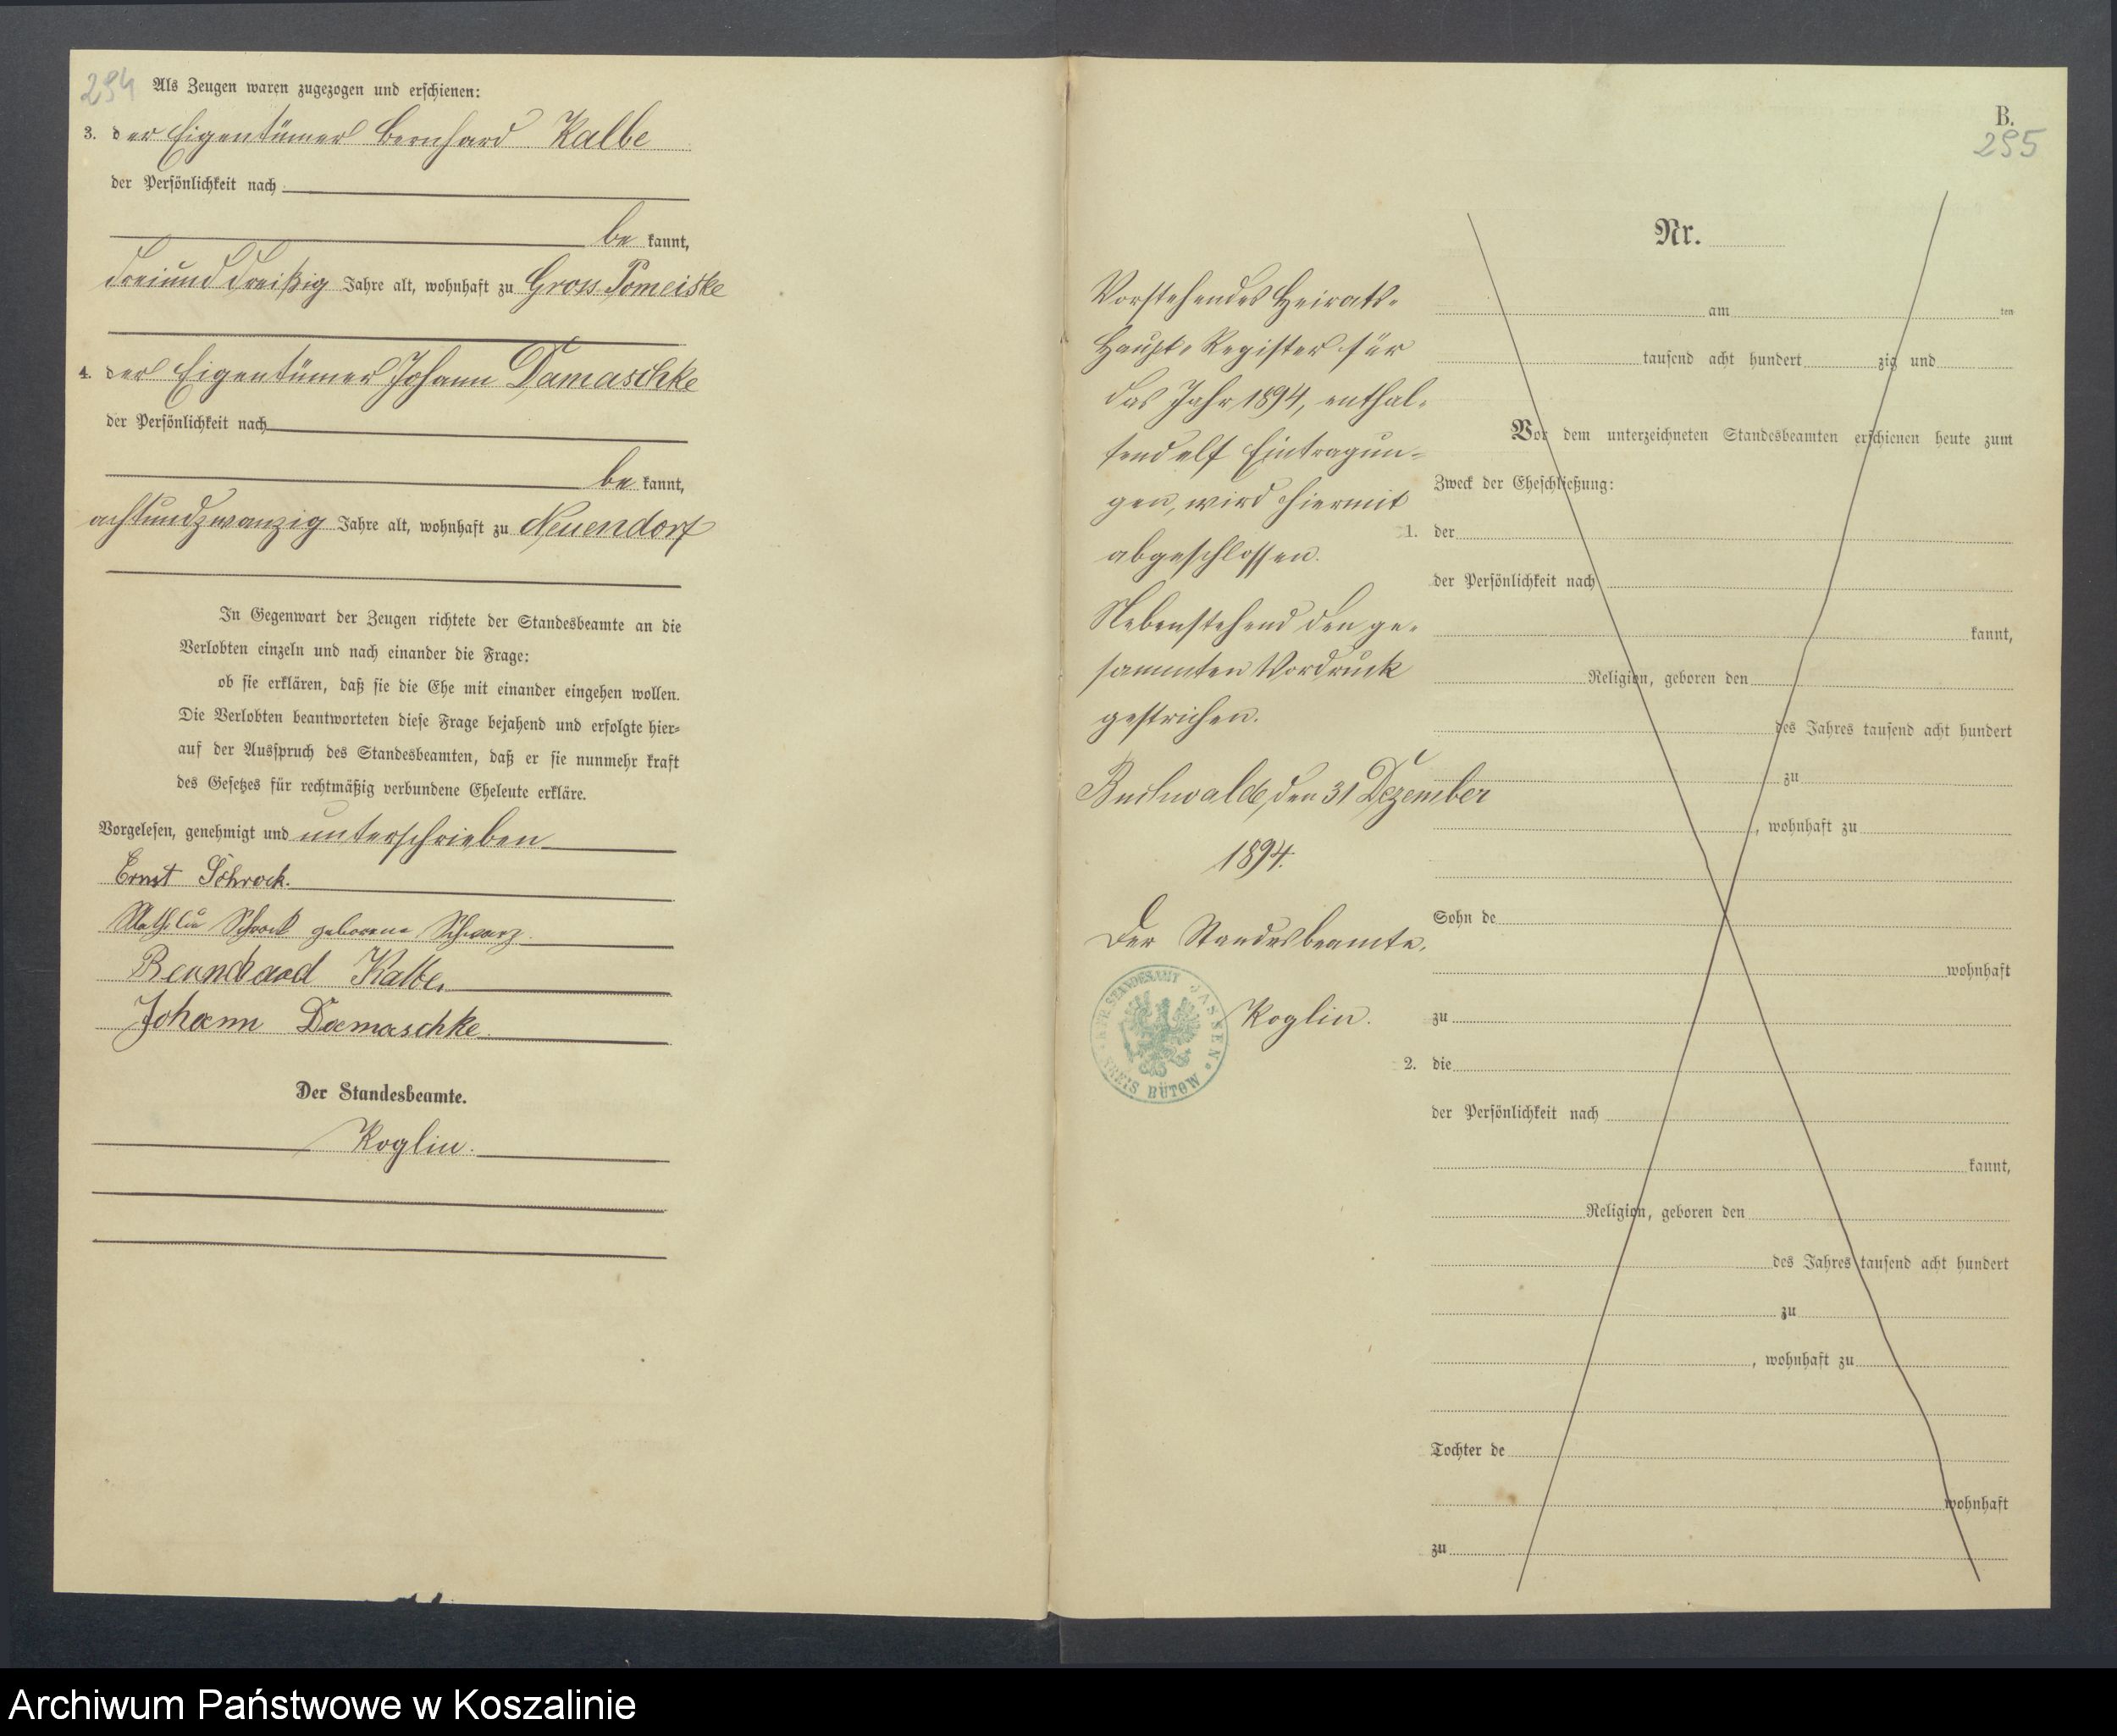 294
Als Zeugen waren zugezogen und erschienen:
3. der Eigentümer Bernhard Kalbe
der Persönlichkeit nach
be kannt,
dreiund dreißig Jahre alt, wohnhaft zu Gross Pomeiske
4. der Eigentümer Johann Damaschke
der Persönlichkeit nach
be kannt,
achtundzwanzig Jahre alt, wohnhaft zu Neuendorf
In Gegenwart der Zeugen richtete der Standesbeamte an die
Verlobten einzeln und nach einander die Frage:
ob sie erklären, daß sie die Ehe mit einander eingehen wollen.
Die Verlobten beantworteten diese Frage bejahend und erfolgte hier-
auf der Ausspruch des Standesbeamten, daß er sie nunmehr kraft
des Gesetzes für rechtmäßig verbundene Eheleute erkläre.
Vorgelesen, genehmigt und unterschrieben
Ernst Schrock.
Mathilde Schrock geborene Schwarz.
Bernhard Kalbe.
Johann Damaschke
Der Standesbeamte.
Koglin.
B.
295
Vorstehendes Heirats-
Haupt-Register für
das Jahr 1894, enthal-
tend elf Eintragun-
gen, wird hiermit
abgeschlossen.
Nebenstehend den ge-
sammten Vordruck
gestrichen.
Buchwalde, den 31 Dezember
1894.
Der Standesbeamte.
Koglin.
STANDESAMT JASSEN
KREIS BÜTOW
Nr.
am ten
tausend acht hundert zig und
Vor dem unterzeichneten Standesbeamten erschienen heute zum
Zweck der Eheschließung:
1. der
der Persönlichkeit nach
kannt,
Religion, geboren den
des Jahres tausend acht hundert
zu
, wohnhaft zu
Sohn de
wohnhaft
zu
2. die
der Persönlichkeit nach
kannt,
Religion, geboren den
des Jahres tausend acht hundert
zu
, wohnhaft zu
Tochter de
wohnhaft
zu
Archiwum Państwowe w Koszalinie